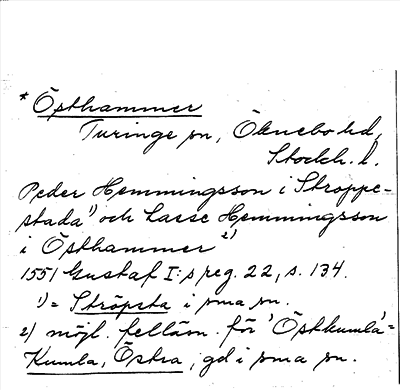 * Östhammer
Turinge sn, Öknebo hd,
Stockh. l.
Peder Hemmingsson i Stroppe-
stada 1) och Lasse Hemmingsson
i Östhammer 2)
1551 Gustaf I:s reg. 22, s. 134.
1) = Ströpsta i sma sn.
2) möjl. felläsn. för 'Östkumla' =
Kumla, Östra, gd i sma sn.